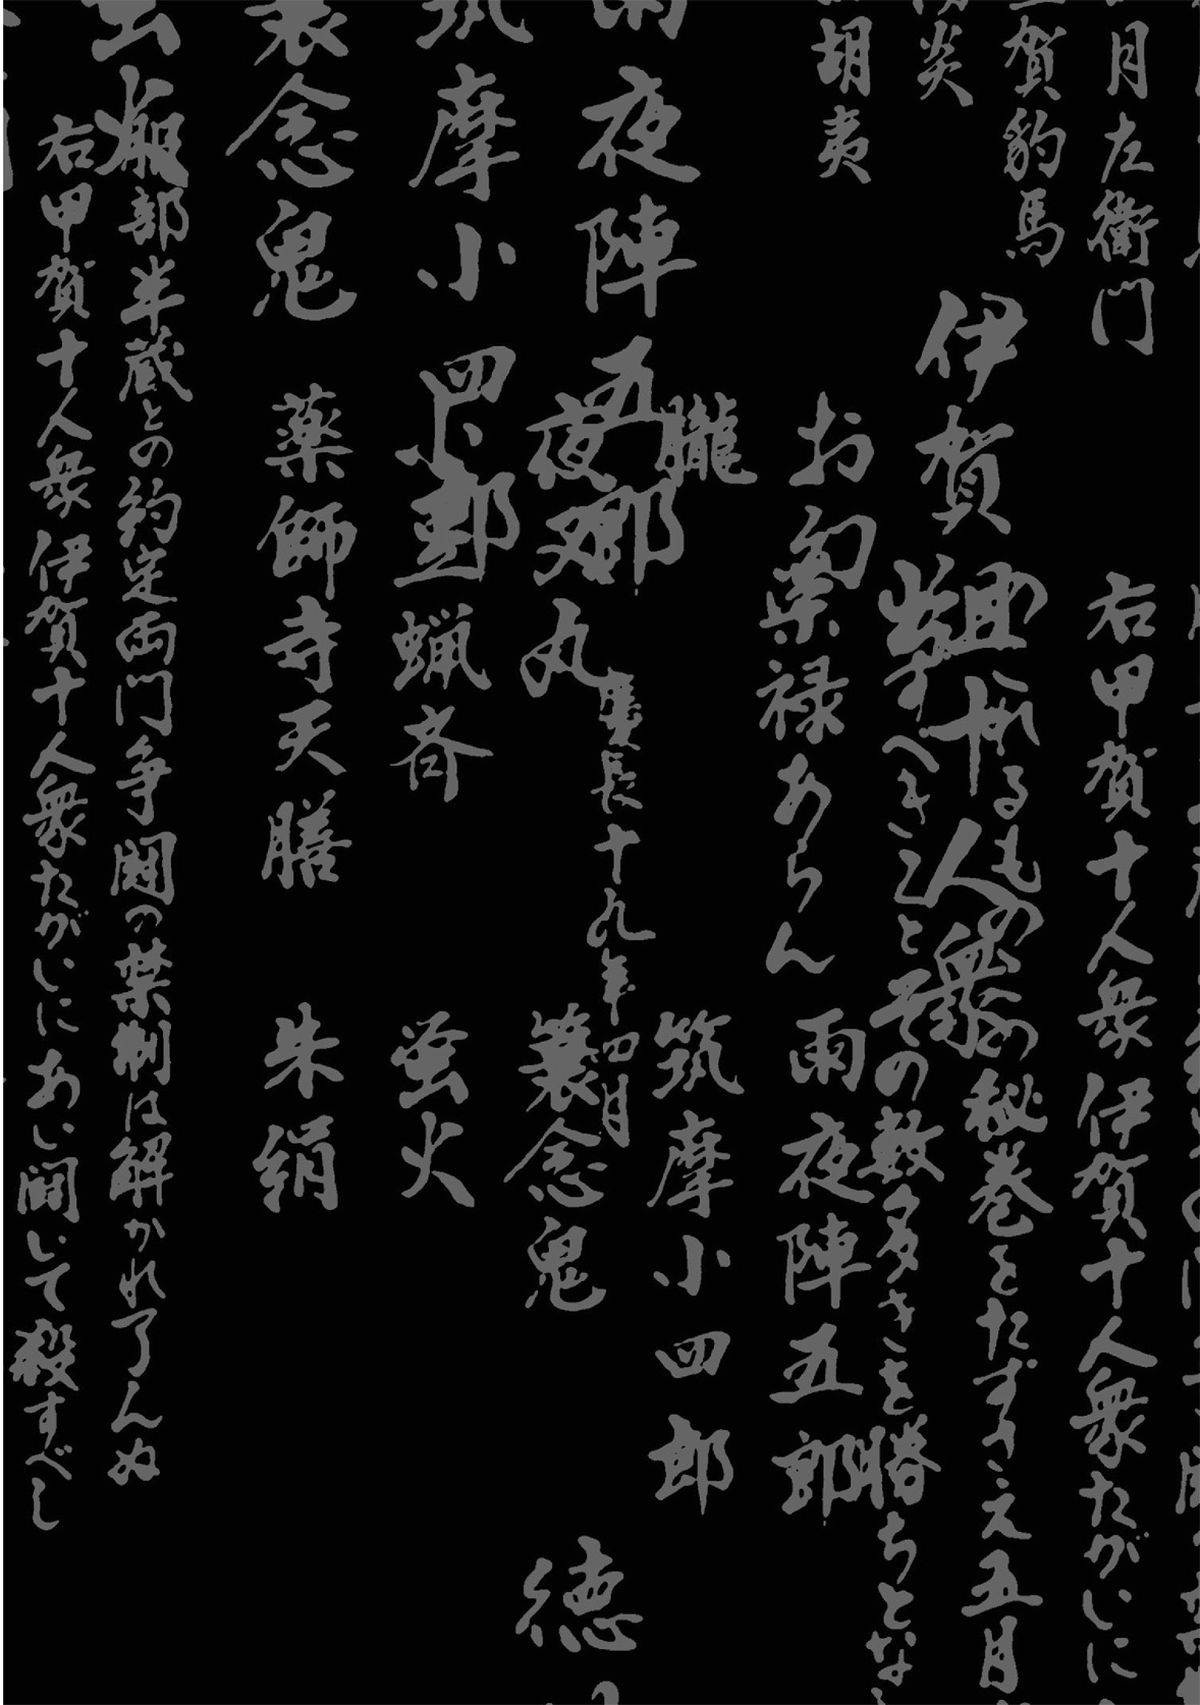 月左衛門
右甲賀十人衆伊賀十人衆たがいに
賀豹馬
炎
伊賀十人衆
るもの
秘巻をたずさえ五月
胡夷
すべきことその数多きを勝ちとな
お幻
禄あらん
雨夜陣五郎
朧
筑摩小四郎
夜陣五郎
慶長十九年四月
夜叉丸
蓑念鬼
徳
筑摩小四郎
小豆蝋斉
蛍火
蓑念鬼
薬師寺天膳
朱絹
服部半蔵との約定両門争闘の禁制は解かれ了んぬ
右甲賀十人衆伊賀十人衆たがいにあい闘いて殺すべし